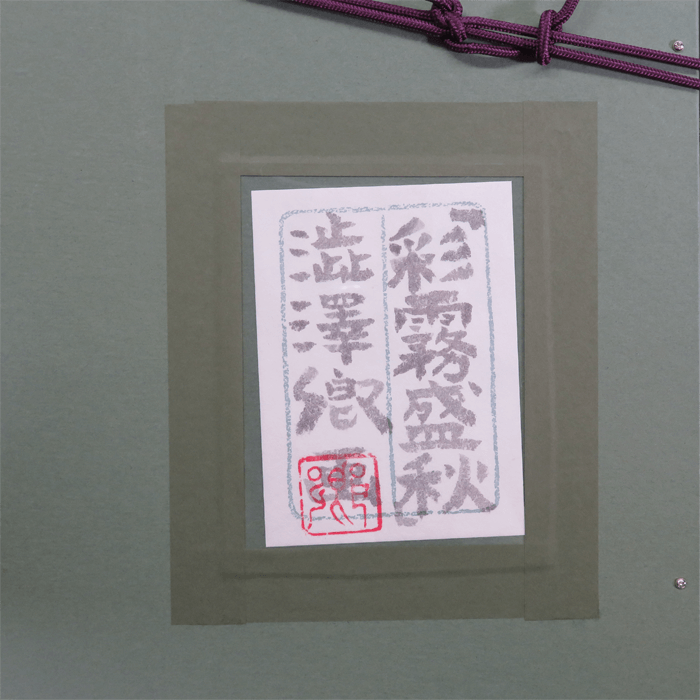 彩霧盛秋
澁澤卿画